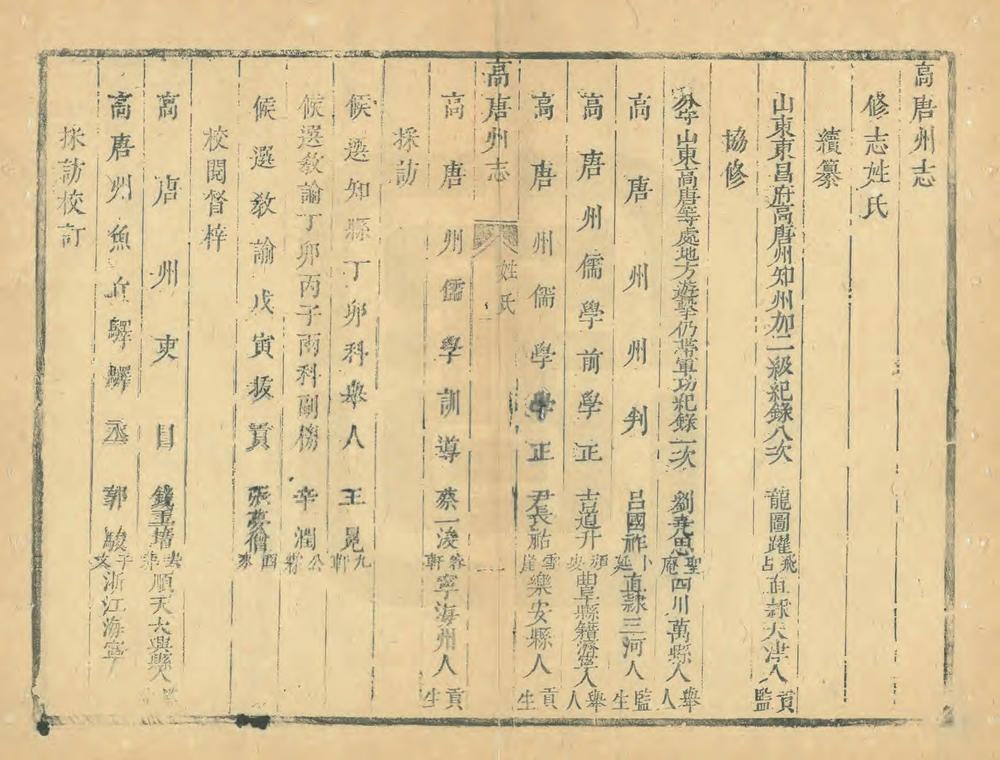 高唐州志
修志姓氏
續纂
山東東昌府高唐州知州加二級紀錄八次 龍圖躍 飛占 直隸天津人 貢監
協修
分守山東高唐等處地方遊擊仍帶軍功紀錄一次 劉堯思 聖庵 四川萬縣人 舉人
高唐州州判 呂國祚 小延 直隸三河人 監生
高唐州儒學前學正 吉道升 曲阜縣籍濟寧人 舉人
高唐州儒學學正 尹長祐 雪崖 樂安縣人 貢生
高唐州志 姓氏 一
高唐州儒學訓導 蔡一浚 睿軒 寧海州人 貢生
採訪
候選知縣丁卯科舉人 王晃 九軒
候選教諭丁卯丙子兩科副榜 辛潤 公
候選教諭戊寅拔貢 張夢僧 酉
校閱督梓
高唐州吏目 錢玉堉 順天大興縣人
高唐州魚丘驛驛丞 郭駿 子文 浙江海寧
採訪校訂